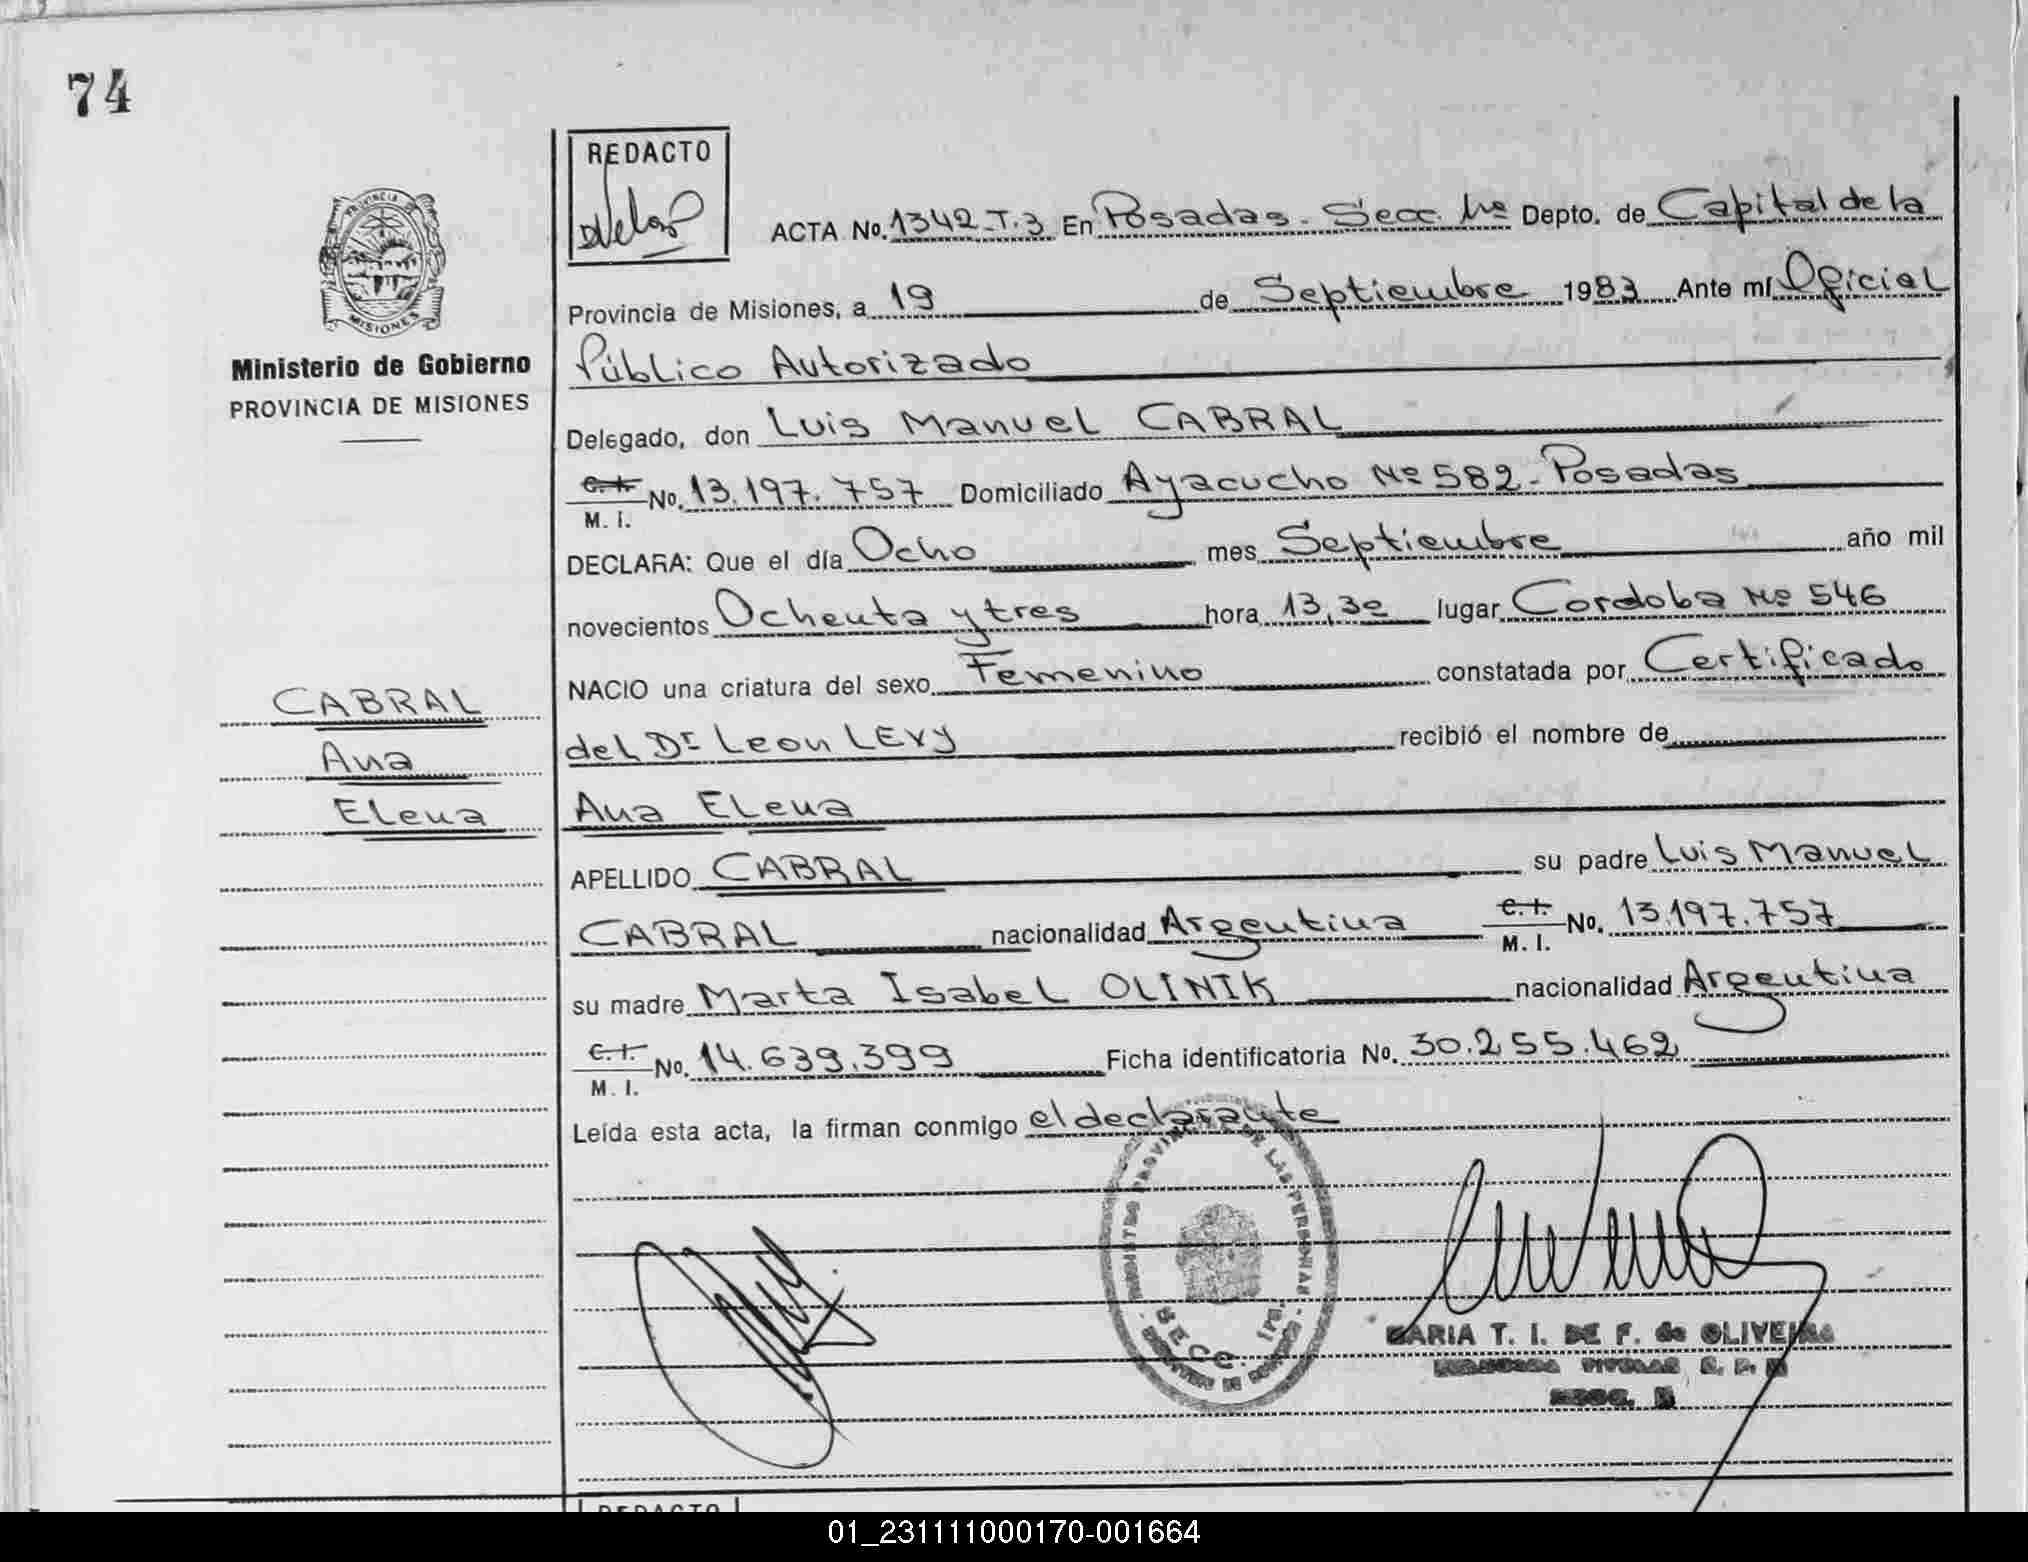 74
REDACTO
PROVINCIA DE
MISIONES
Ministerio de Gobierno
PROVINCIA DE MISIONES
ACTA No. 1342-T.3 En Posadas. Secc. 1ra Depto. de Capital de la
Provincia de Misiones, a 19 de Septiembre 1983 Ante mí Oficial
Público Autorizado
Delegado, don Luis Manuel CABRAL
C. I.
M. I. No. 13.197.757 Domiciliado Ayacucho Nº 582 - Posadas
DECLARA: Que el día Ocho mes Septiembre año mil
novecientos Ochenta y tres hora 13,30 lugar Cordoba Nº 546
NACIO una criatura del sexo Femenino constatada por Certificado
del Dr Leon LEVY recibió el nombre de
Ana Elena
APELLIDO CABRAL su padre Luis Manuel
CABRAL nacionalidad Argentina C. I.
M. I. No. 13.197.757
su madre Marta Isabel OLINIK nacionalidad Argentina
C. I.
M. I. No. 14.639.399 Ficha identificatoria No. 30.255.462
Leída esta acta, la firman conmigo el declarante
CABRAL
Ana
Elena
REGISTRO PROVINCIAL DE LAS PERSONAS
SECC. 1ra.
MARIA T. I. DE F. de OLIVEIRA
REDACTO
01_231111000170-001664